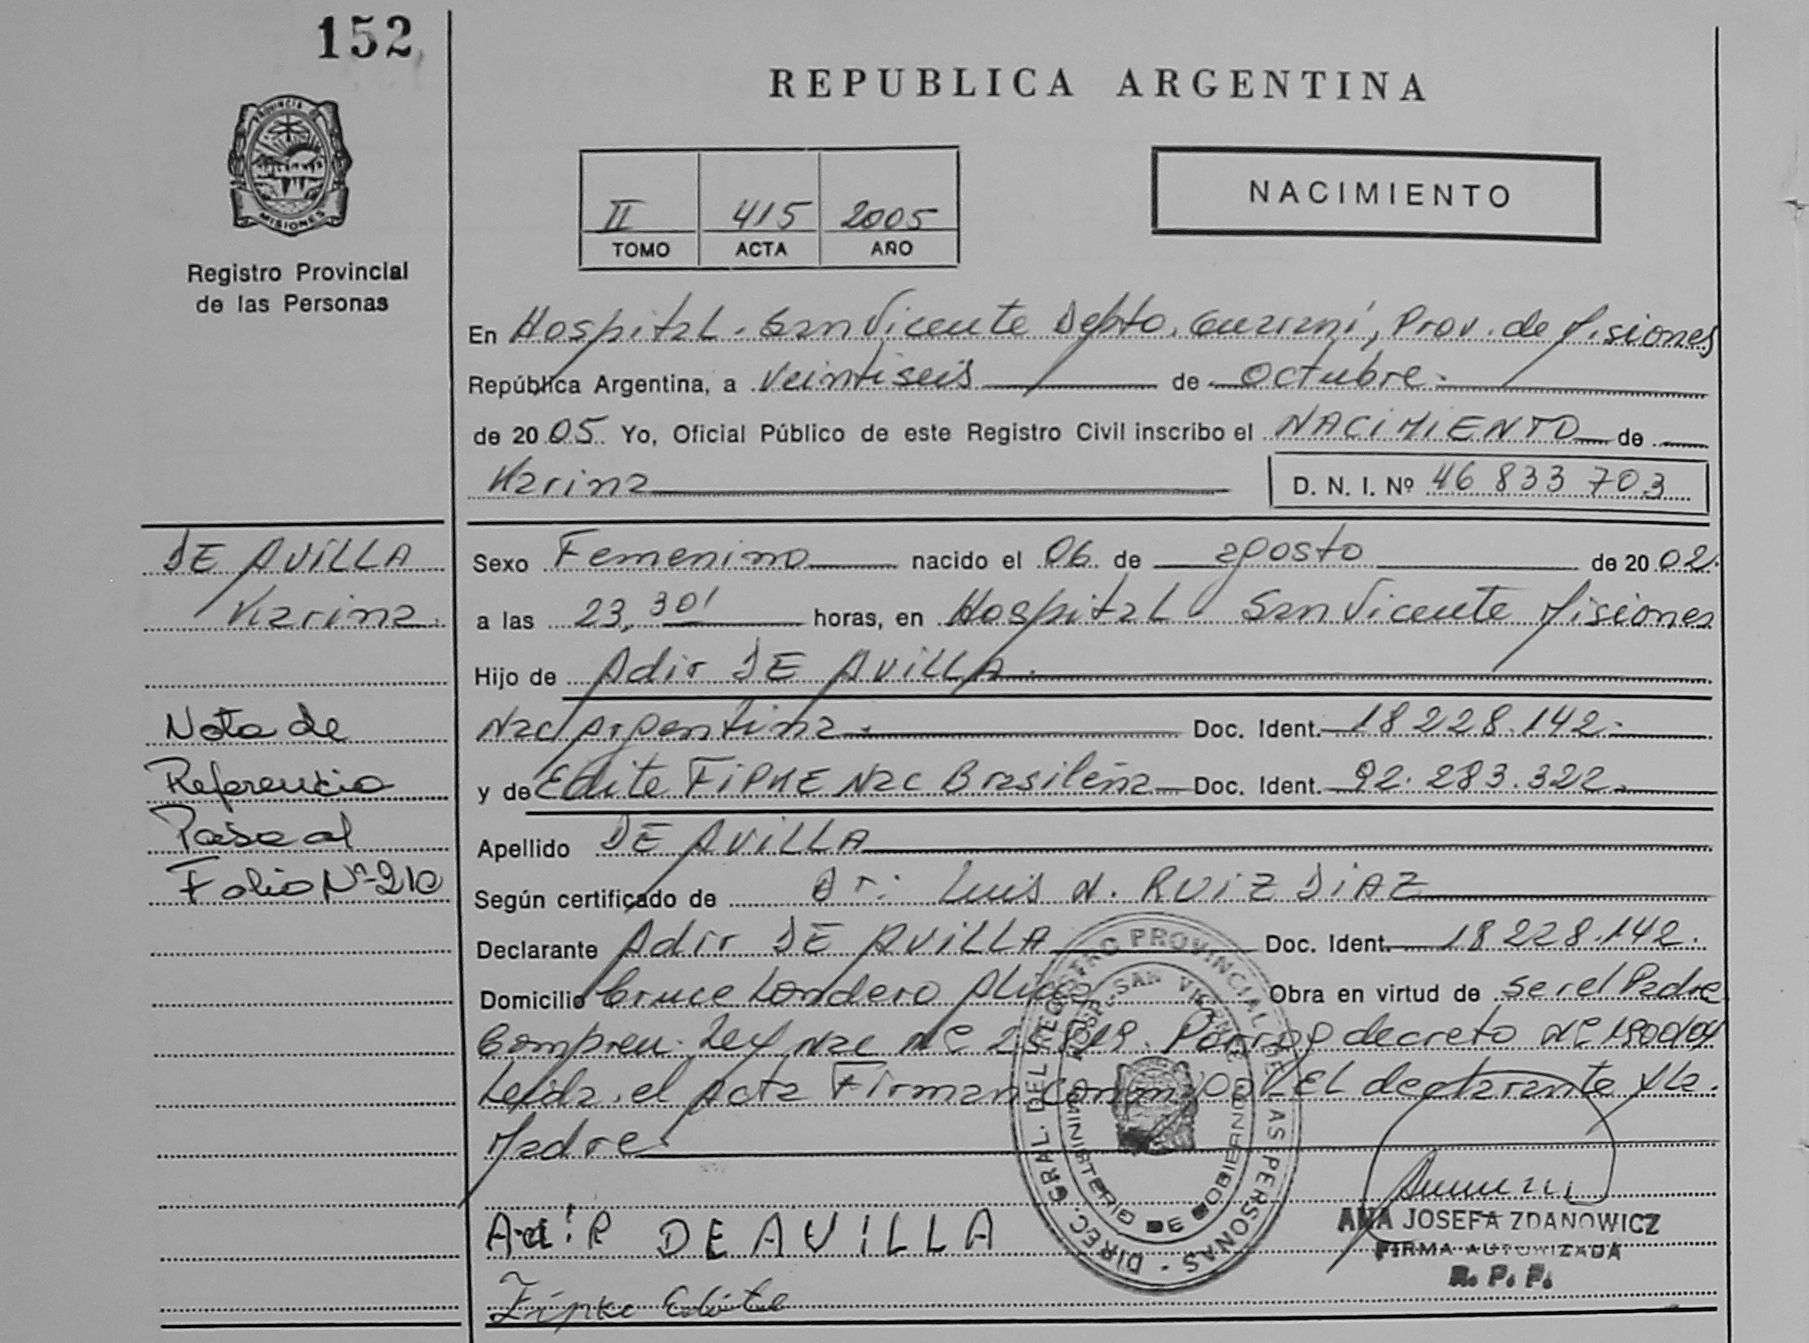 152
REPUBLICA ARGENTINA
PROVINCIA DE
MISIONES
Registro Provincial
de las Personas
II 415 2005
TOMO ACTA AÑO
NACIMIENTO
En Hospital. San Vicente Depto. Guaraní, Prov. de Misiones
República Argentina, a Veintiseis de Octubre.
de 2005. Yo, Oficial Público de este Registro Civil inscribo el NACIMIENTO de
Karina D. N. I. Nº 46 833 703
DE AVILLA
Karina.
Sexo Femenino nacido el 06 de agosto de 2002.
a las 23,30' horas, en Hospital San Vicente Misiones
Hijo de Adir DE AVILLA.
Nac Argentina. Doc. Ident. 18 228.142.
y de Edite FiPKE Nac Brasileña Doc. Ident. 92.283.322.
Apellido DE AVILLA
Según certificado de Dr: Luis N. RUIZ DIAZ
Declarante Adir DE AVILLA Doc. Ident. 18 228.142.
Domicilio Cruce Londero Obra en virtud de ser el Padre
Ley Nac Nº decreto Nº
Leida el Acta Firman El declarante y la
Madre.
Nota de
Referencia
Pasa al
Folio Nº 210
Adir DE AVILLA
Fipke Edite
DIREC. GRAL. DEL REGISTRO PROVINCIAL DE LAS PERSONAS
HOSP. SAN VICENTE
MINISTERIO DE GOBIERNO
ANA JOSEFA ZDANOWICZ
FIRMA AUTORIZADA
R. P. P.